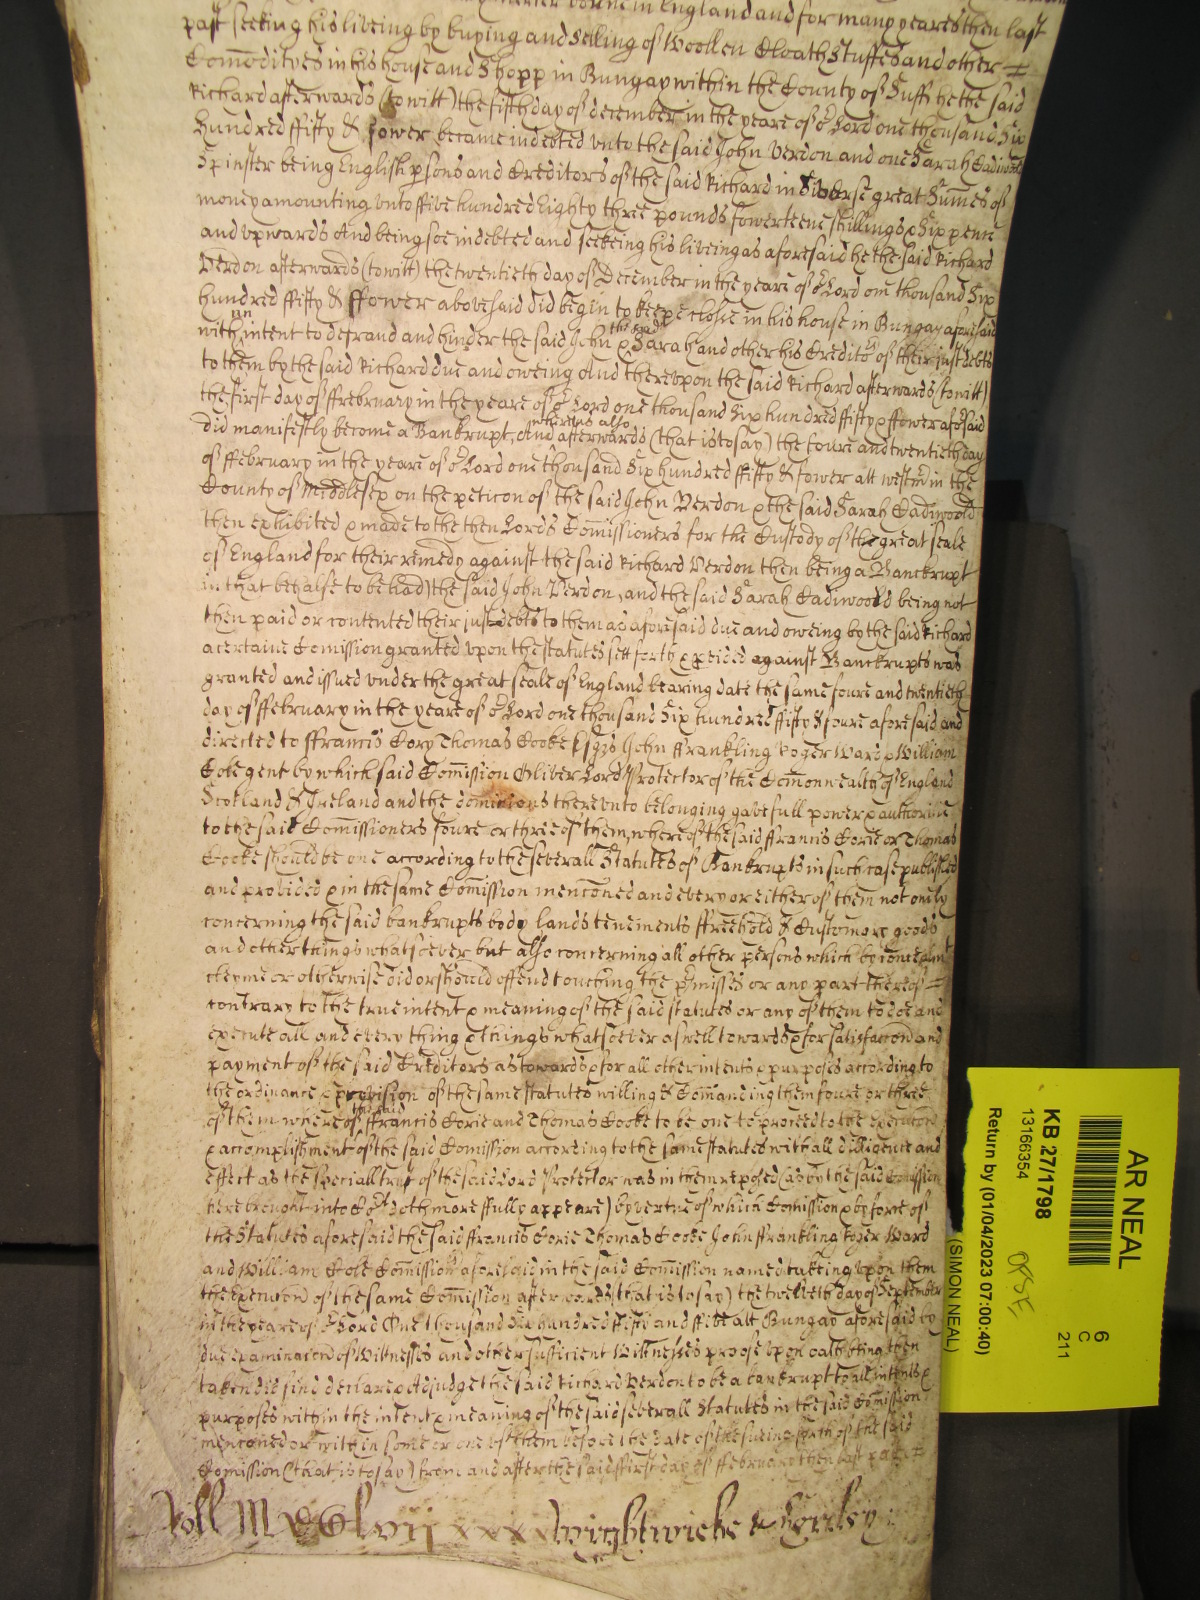 borne in England and for many yeares then last
past seeking his liveing by buying and Selling of Woollen Cloath Stuffes and other =
Comodityes in his house and Shopp in Bungay within the County of Suff he the said
Richard afterwards (to witt) the fifth day of december in the yeare of or Lord one thousand Six
hundred ffifty & fower became indebted unto the said John Verdon and one Sarah Cadiwoold
Spinster being English psons and Creditors of the said Richard in diverse great Sumes of
money amounting unto ffive hundred Eighty three pounds fowerteene shillings & Sixpence
and upwards And being soe indebted and seekeing his liveing as aforesaid he the said Richard
Verdon afterwards (to witt) the twentieth day of December in the yeare of or Lord one thousand Six
hundred ffifty & ffower abovesaid did begin to keepe close in his house in Bungay aforesaid
with an intent to defraud and hinder the said John & the said Sarah and other his Creditors of their just debts
to them by the said Richard due and oweing And thereupon the said Richard afterwards (to witt)
the first day of ffebruary in the yeare of or Lord one thousand Six hundred ffifty & ffower aforesaid
did manifestly become a Bankrupt, And whereas also afterwards (that is to say) the foure and twentieth day
of ffebruary in the yeare of or Lord one thousand Six hundred ffifty & fower att Westmr in the
County of Middlesex on the peticon of the said John Verdon & the said Sarah Cadiwoold
then exhibited & made to the then Lords Comissioners for the Custody of the great seale
of England for their remedy against the said Richard Verdon then being a Banckrupt
in that behalfe to be had) the said John Verdon, and the said Sarah Cadiwoold being not
then paid or contented their just debts to them as aforesaid due and oweing by the said Richard
a certaine Comission granted upon the statutes sett forth & pvided against Banckrupts was
granted and issued under the great seale of England bearing date the same foure and twentieth
day of ffebruary in the yeare of or Lord one thousand Six hundred ffifty & foure aforesaid and
directed to ffrancis Cory Thomas Cooke Esqrs John ffrankling Roger Ward & William
Cole gent by which said Comission Oliver Lord Protector of the Comonwealth of England
Scotland & Ireland and the dominions thereunto belonging gave full power & authoritie
to the said Comissioners foure or three of them, whereof the said ffrancis Corie or Thomas
Cooke should be one according to the severall Statutes of Bankrupts in such case published
and provided & in the same Comission menconed and every or either of them not onely
concerning the said bankrupts body lands tenements ffreehold & Customary goods
and other things whatsoever but also concerning all other persons which by
cleyme or otherwise did or should offend touching the pmisses or any part thereof =
contrary to the true intent & meaning of the said statutes or any of them to doe and
execute all and every thing & things whatsoever aswell towards & for satisfaccon and
payment of the said Creditors as towards & for all other intents & purposes according to
the ordinance & provision of the same statutes willing & Comanding them foure or three
of them whereof the said ffrancis Corie and Thomas Cooke to be one to proceed to the execucon
& accomplishment of the said Comission according to the same statutes with all dilligence and
effect as the speciall trust of the said Lord Protector was in them reposed (as by the said Comission
here brought into Cort doth more ffully appeare) by vertue of which Comission & by force of
the Statutes aforesaid the said ffrancis Corie Thomas Cooke John ffrankling Roger Ward
and William Cole Comissionrs aforesaid in the said Comission named takeing upon them
the execucon of the same Comission afterwards (that is to say) the twelveth day of September
in the yeare of or Lord One thousand Six hundred ffifty and ffive att Bungay aforesaid by
due examinacon of Witnesses and other sufficient Wittnesses proofe upon oath being then
taken did find declare & Adjudge the said Richard Verdon to be a bankrupt to all intents &
purposes within the intent & meaning of the said severall Statutes in the said Comission
menconed or within some or one of them before the date of the sueing forth of the said
Comission (that is to say) from and after the said first day of ffebruary then last past =
Roll xxxx Wightwicke &
AR NEAL
KB 27/1798
13166354
Return by (01/04/2023 07:00:40)
(SIMON NEAL)
6
C
211